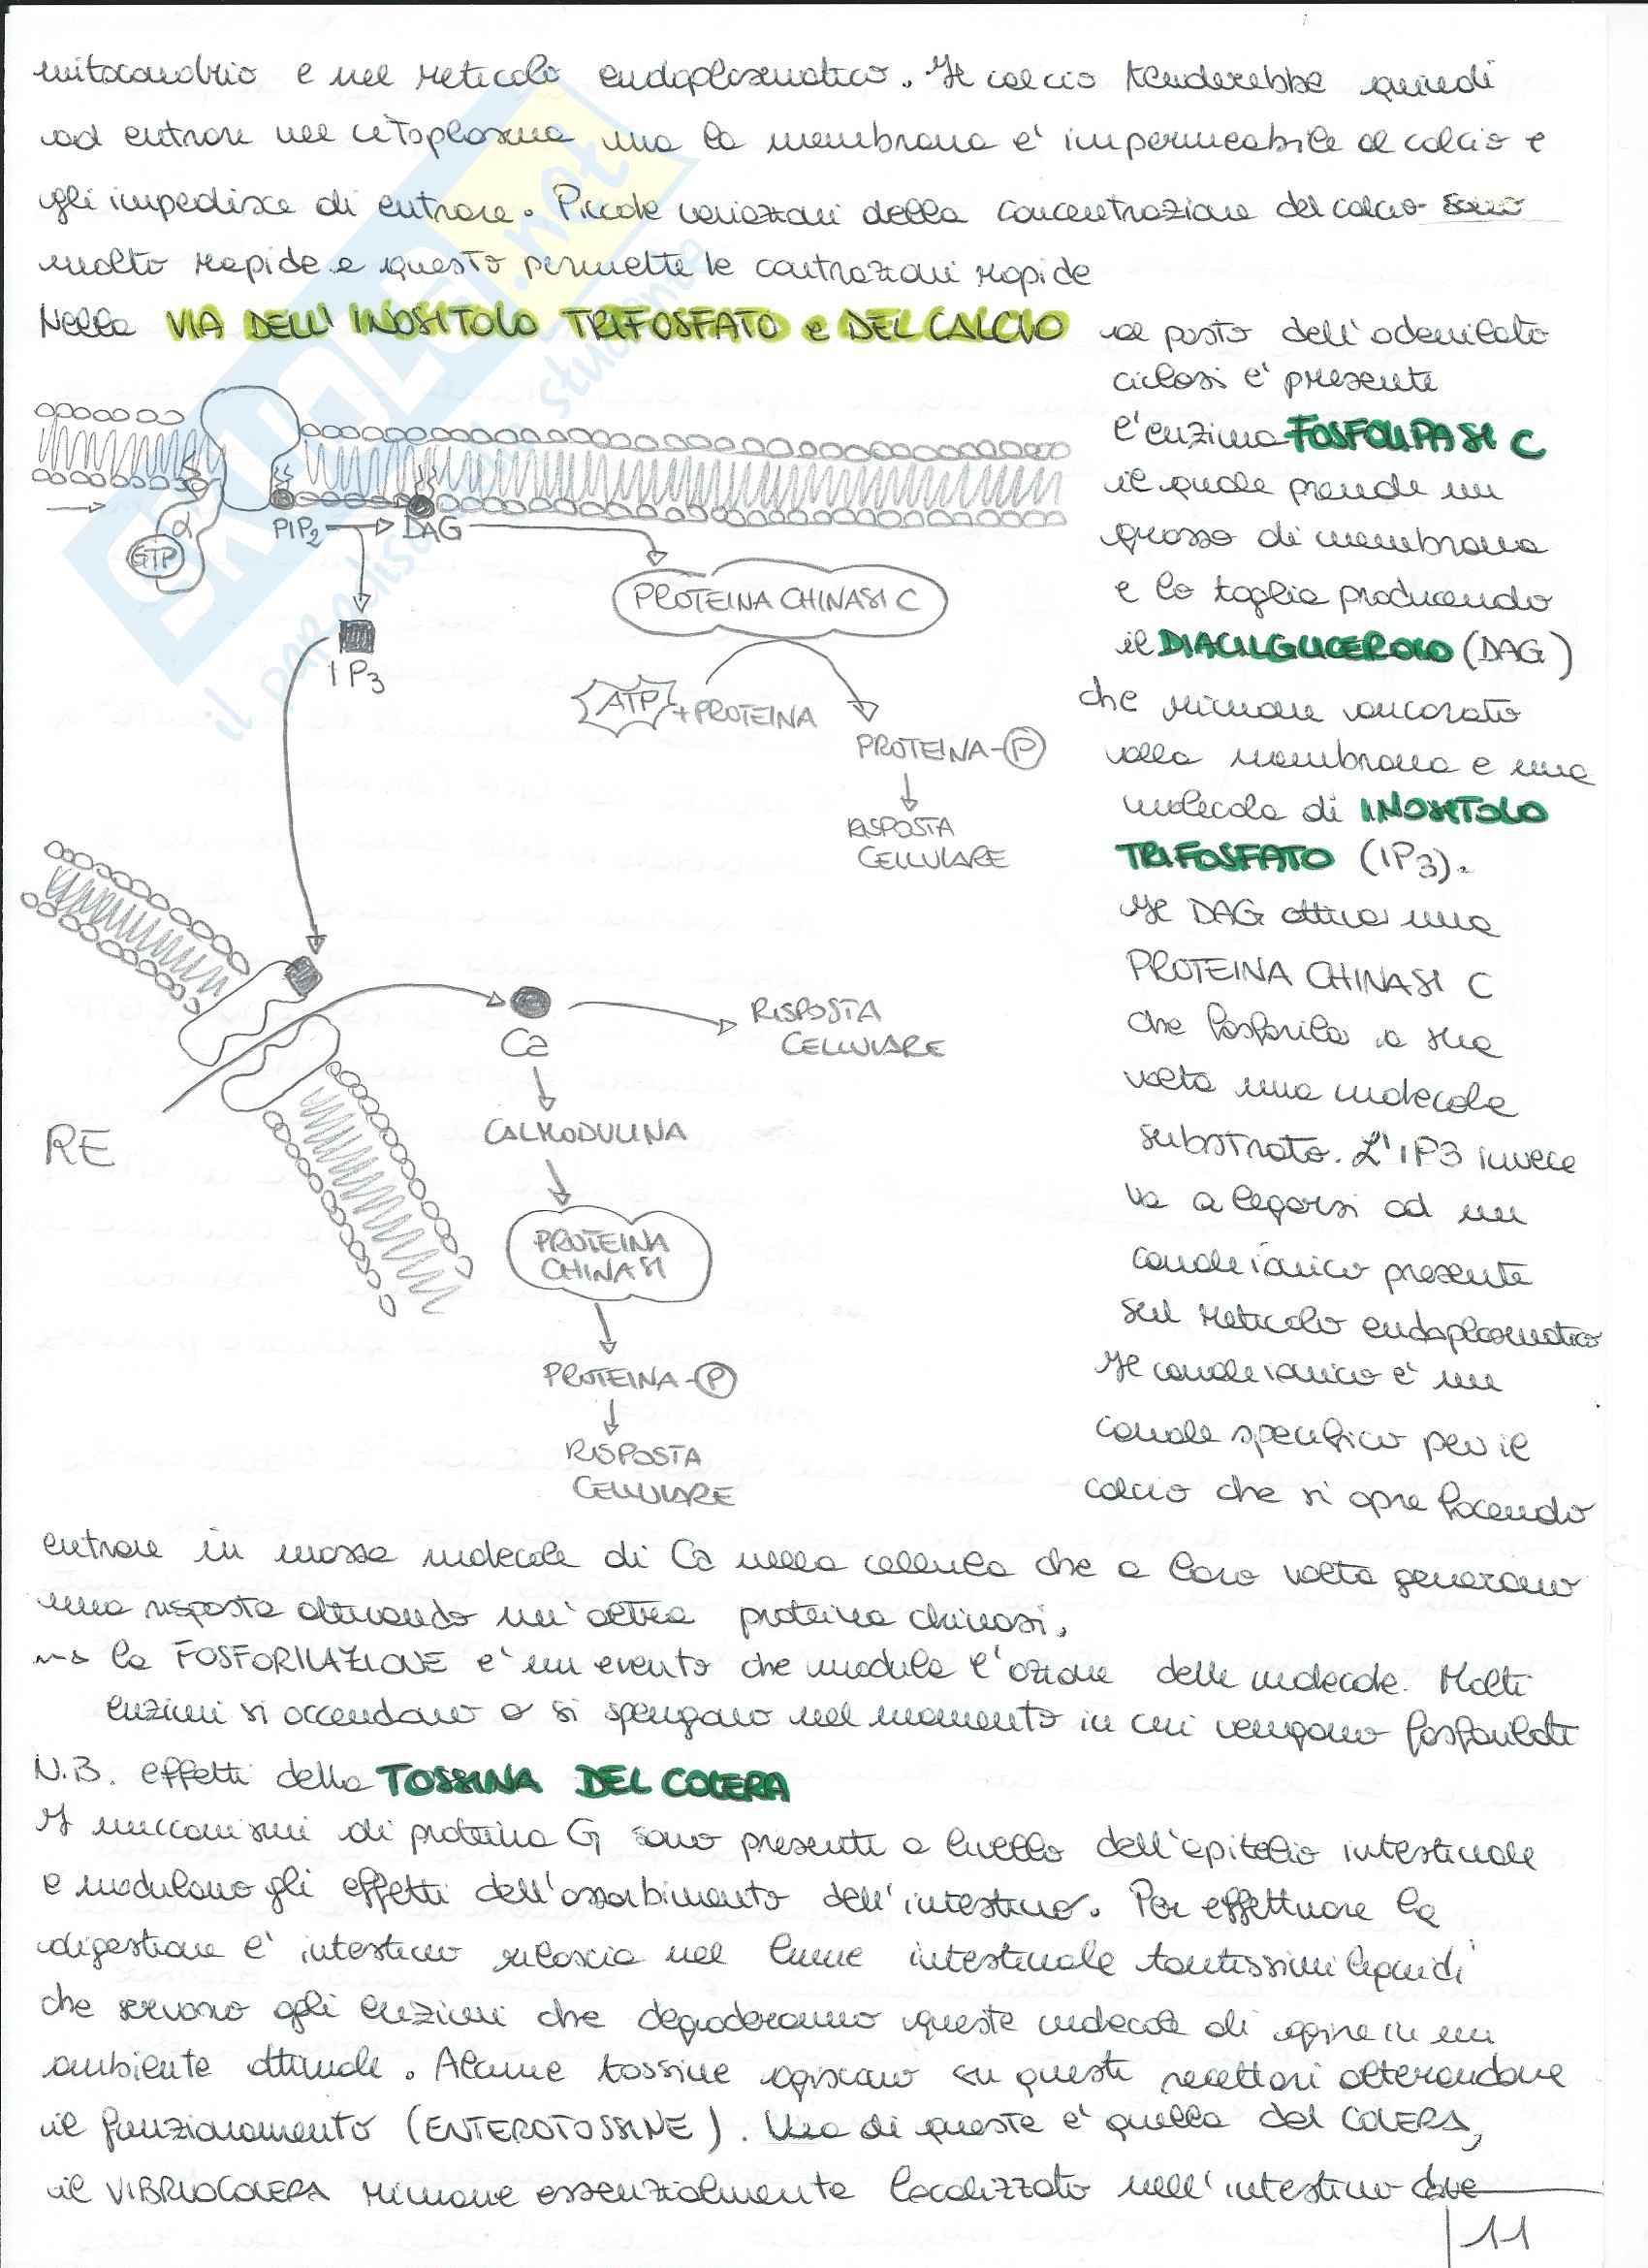 mitocondrio e nel reticolo endoplasmatico. Il calcio tenderebbe quindi
ad entrare nel citoplasma ma la membrana e' impermeabile al calcio e
gli impedisce di entrare. Piccole variazioni della concentrazione del calcio sono
molto rapide e questo permette le contrazioni rapide
Nella VIA DELL'INOSITOLO TRIFOSFATO e DEL CALCIO al posto dell'adenilato
ciclasi e' presente
l'enzima FOSFOLIPASI C
il quale prende un
grasso di membrana
e lo taglia producendo
il DIACILGLICEROLO (DAG)
che rimane ancorato
alla membrana e una
molecola di INOSITOLO
TRIFOSFATO (IP3).
Il DAG attiva una
PROTEINA CHINASI C
che fosforila a sua
volta una molecola
substrato. L'IP3 invece
va a legarsi ad un
canale ionico presente
sul reticolo endoplasmatico
Il canale ionico e' un
canale specifico per il
calcio che si apre facendo
α
GTP
PIP2
DAG
PROTEINA CHINASI C
IP3
ATP + PROTEINA
PROTEINA-P
RISPOSTA
CELLULARE
Ca
RISPOSTA
CELLULARE
CALMODULINA
RE
PROTEINA
CHINASI
PROTEINA-P
RISPOSTA
CELLULARE
entrare in massa molecole di Ca nella cellula che a loro volta generano
una risposta attivando un'altra proteina chinasi.
la FOSFORILAZIONE e' un evento che modula l'azione delle molecole. Molti
enzimi si accendono o si spengono nel momento in cui vengono fosforilati
N.B. effetti della TOSSINA DEL COLERA
I meccanismi di proteina G sono presenti a livello dell'epitelio intestinale
e modulano gli effetti dell'assorbimento dell'intestino. Per effettuare la
digestione l'intestino rilascia nel lume intestinale tantissimi liquidi
che servono agli enzimi che degraderanno queste molecole di agire in un
ambiente ottimale. Alcune tossine agiscono su questi recettori alterandone
il funzionamento (ENTEROTOSSINE). Una di queste e' quella del COLERA,
il VIBRIOCOLERA rimane essenzialmente localizzato nell'intestino dove
11
SKUOLA.net
il paradiso dello studente